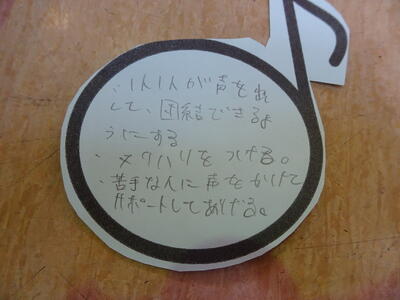 ・1人1人が声を出
して、団結できるよ
うにする
・メリハリをつける。
・苦手な人に声をかけて
サポートしてあげる。